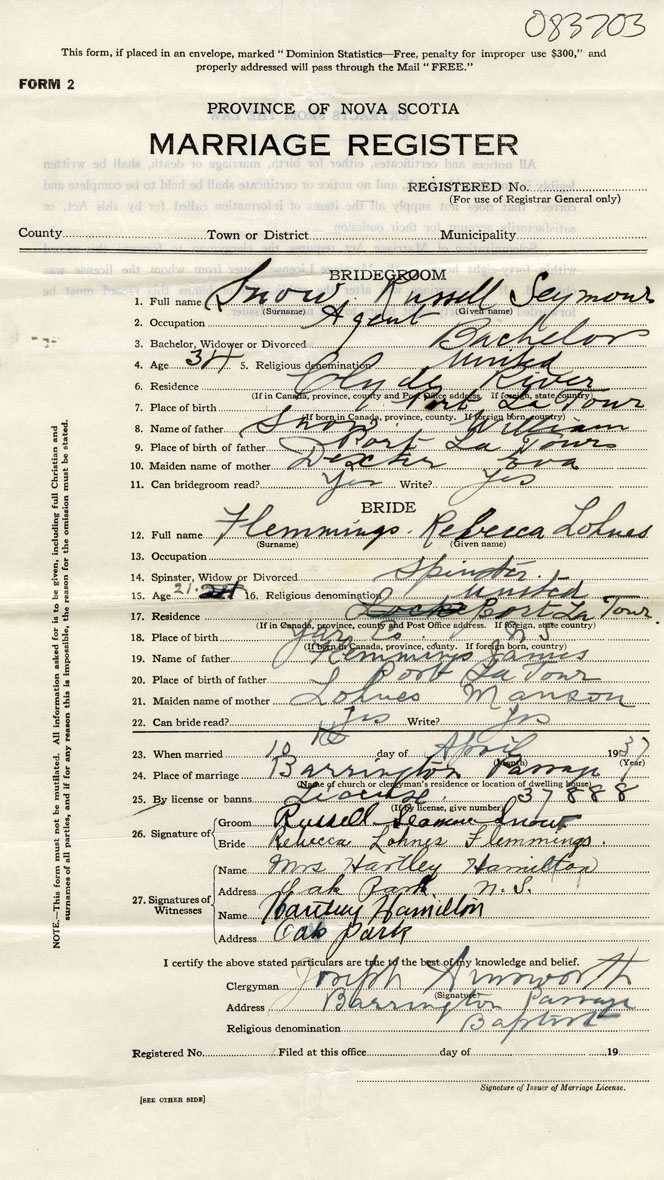 083703
This form, if placed in an envelope, marked "Dominion Statistics—Free, penalty for improper use $300," and
properly addressed will pass through the Mail "FREE."
FORM 2
PROVINCE OF NOVA SCOTIA
MARRIAGE REGISTER
REGISTERED No.
(For use of Registrar General only)
County Town or District Municipality
BRIDEGROOM
1. Full name Snow. Russell Seymour
(Surname) (Given name)
2. Occupation Agent
3. Bachelor, Widower or Divorced Bachelor
4. Age 34 5. Religious denomination United
6. Residence Clyde River
(If in Canada, province, county and Post Office address. If foreign, state country)
7. Place of birth Port La Tour
(If born in Canada, province, county. If foreign born, country)
8. Name of father Snow. William
9. Place of birth of father Port La Tour
10. Maiden name of mother Dexter Eva
11. Can bridegroom read? Yes Write? Yes
BRIDE
12. Full name Flemmings. Rebecca Lohnes
(Surname) (Given name)
13. Occupation
14. Spinster, Widow or Divorced Spinster.
15. Age 21. 16. Religious denomination United
17. Residence Locke Port La Tour.
(If in Canada, province, county and Post Office address. If foreign, state country)
18. Place of birth Yar Co. N S
(If born in Canada, province, county. If foreign born, country)
19. Name of father Flemmings James
20. Place of birth of father Port La Tour
21. Maiden name of mother Lohnes Manson
22. Can bride read? Yes Write? Yes
23. When married 10 th day of April 1937
(Month) (Year)
24. Place of marriage Barrington Passage
(Name of church or clergyman's residence or location of dwelling house)
25. By license or banns License. 37888
(If by license, give number)
26. Signature of Groom Russell Seamour Snow
Bride Rebecca Lohnes Flemmings.
27. Signatures of Witnesses
Name Mrs Hartley Hamilton
Address Oak Park N. S.
Name Hartley Hamilton
Address Oak Park
I certify the above stated particulars are true to the best of my knowledge and belief.
Clergyman Joseph Ainsworth
(Signature)
Address Barrington Passage
Religious denomination Baptist
Registered No. Filed at this office day of 19
Signature of Issuer of Marriage License.
[SEE OTHER SIDE]
NOTE.—This form must not be mutilated. All information asked for is to be given, including full Christian and
surnames of all parties, and if for any reason this is impossible, the reason for the omission must be stated.